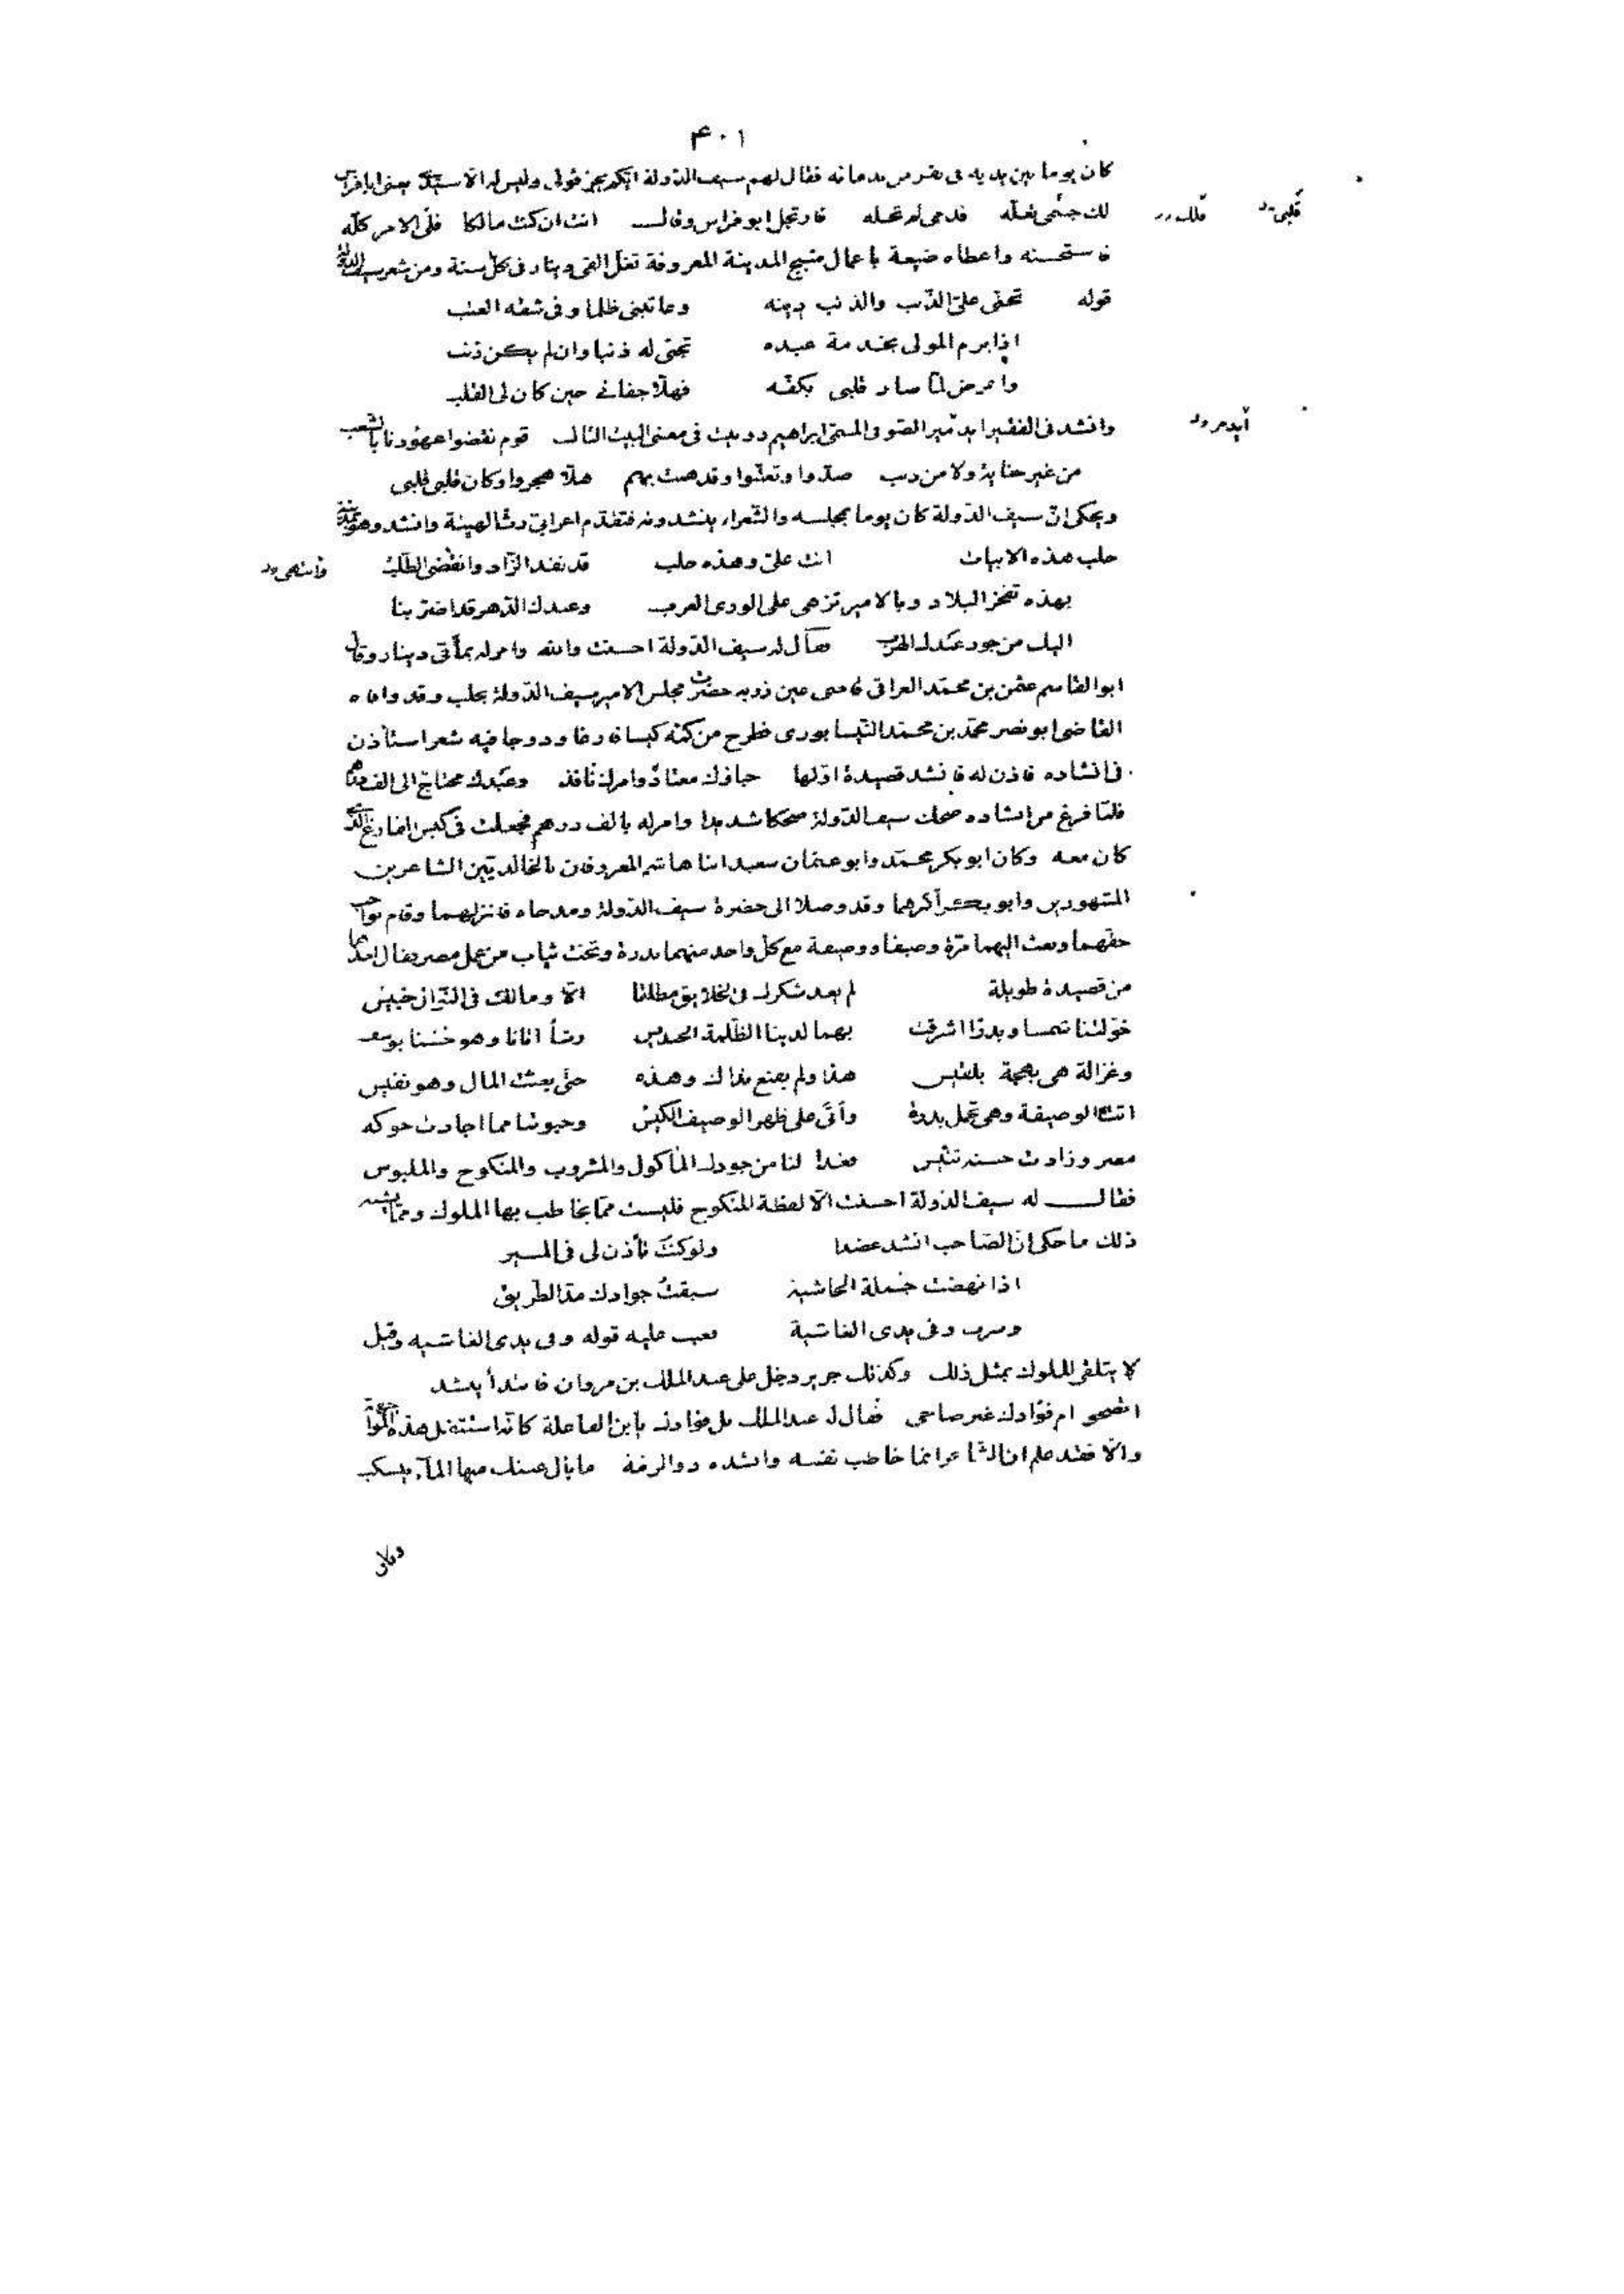 ٤٠١
كان يوما بين يديه فى نفر من ندمائه فقال لهم سيف الدولة ايكم يجيز قولى وليس له الا سيدى يعنى ابا فراس
لك جسمى تعله فدمى لم تحله فارتجل ابو فراس وقال انت ان كنت مالكا فلى الامر كله
فاستحسنه واعطاه ضيعة باعمال منبج المدينة المعروفة تغل الفى دينار فى كل سنة ومن شعر سيف الدولة
قوله تجنى على الذنب والذنب ذنبه وعاتبنى ظلما وفى شقه العتب
اذا برم المولى بخدمة عبده تجنى له ذنبا وان لم يكن ذنب
واعرض لما صار قلبى بكفه فهلا جفانى حين كان لى القلب
وانشد فى الفقير ايدمر الصوفى المسمى ابراهيم دوبيت فى معنى البيت الثالث قوم نقضوا عهودنا بالشعب
من غير جناية ولا من ذنب صدوا وتعتبوا وقد همت بهم هلا هجروا وكان قلبى قلبى
ويحكى ان سيف الدولة كان يوما بمجلسه والشعراء ينشدونه فتقدم اعرابى رث الهيئة وانشد وهو بمدينة
حلب هذه الابيات انت على وهذه حلب قد نفد الزاد وانقضى الطلب
بهذه تفخر البلاد وبالامير تزهى على الورى العرب وعبدك الدهر قد اضر بنا
اليك من جور عبدك الهرب فقال له سيف الدولة احسنت والله وامر له بمأتى دينار وقال
ابو القاسم عثمن بن محمد العراقى قاضى عين زربه حضرت مجلس الامير سيف الدولة بحلب وقد وافاه
القاضى ابو نصر محمد بن محمد النيسابورى فطرح من كمه كيسا فارغا ودرجا فيه شعر استأذن
فى انشاده فاذن له فانشد قصيدة اولها حباؤك معتاد وامرك نافذ وعبدك محتاج الى الف درهم
فلما فرغ من انشاده ضحك سيف الدولة ضحكا شديدا وامر له بالف درهم فجعلت فى كيس الفارغ الذى
كان معه وكان ابو بكر محمد وابو عثمان سعيد ابنا هاشم المعروفان بالخالديين الشاعرين
المشهورين وابو بكر اكبرهما وقد وصلا الى حضرة سيف الدولة ومدحاه فانزلهما وقام بواجب
حقهما وبعث اليهما مرة وصيفا ووصيفة مع كل واحد منهما بدرة وتخت ثياب من عمل مصر فقال احدهما
من قصيدة طويلة لم يعد شكرك فى الخلايق مطلقا الا ومالك فى النوال حبيس
خولتنا شمسا وبدرا اشرقت بهما لدينا الظلمة الحنديس رشأ اتانا وهو حسنا يوسف
وغزالة هى بهجة بلقيس هذا ولم يقنع بذاك وهذه حتى بعثت المال وهو نفيس
اتت الوصيفة وهى تحمل بدرة وأتى على ظهر الوصيف الكيس وحبوتنا مما اجادت حوكه
مصر وزادت حسنه تنيس فغدا لنا من جودك المأكول والمشروب والمنكوح والملبوس
فقال له سيف الدولة احسنت الا لفظة المنكوح فليست مما يخاطب بها الملوك ومما يشبه
ذلك ما حكى ان الصاحب انشد عضدا ولو كنت تأذن لى فى المسير
اذا نهضت جملة الحاشية سبقت جوادك مذ الطريق
وسرت وفى يدى الغاشية فعيب عليه قوله وفى يدى الغاشيه وقيل
لا يتلقى الملوك بمثل ذلك وكذلك جرير دخل على عبد الملك بن مروان فابتدأ ينشد
اتصحو ام فؤادك غير صاحى فقال له عبد الملك بل فؤادك يا ابن الفاعلة كانه استثقل هذه المواجهة
والا فقد علم ان الشاعر انما خاطب نفسه وانشده ذو الرمة ما بال عينك منها الماء ينسكب
وكان
قلبى
ملك
ايدمر
وانتهى